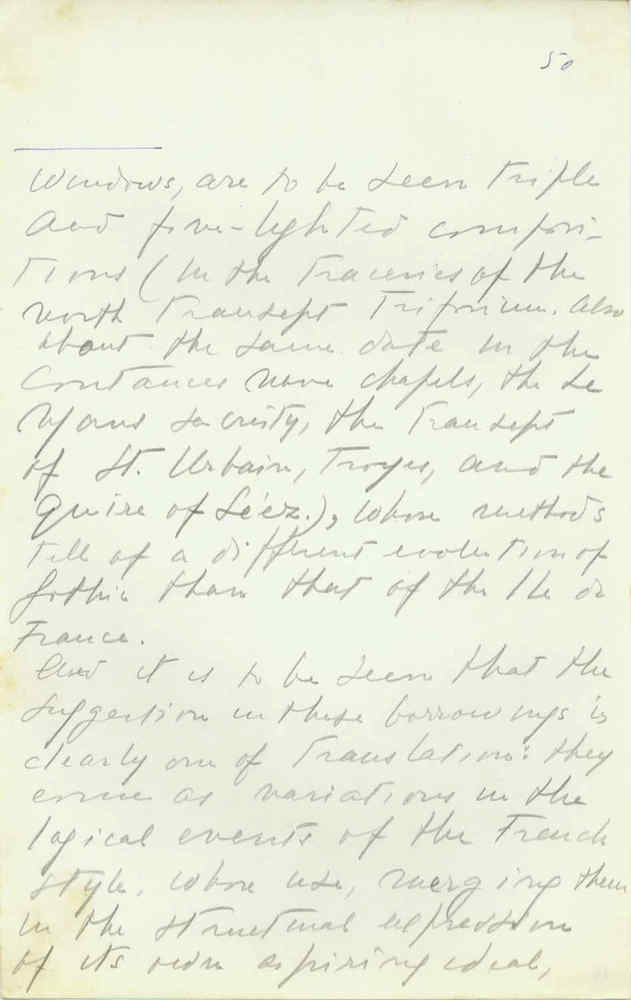 50
Windows, are to be seen triple
and five-lighted composi-
tions (in the traceries of the
north transept triforium. Also
about the same date in the
Coutances nave chapels, the Le
Mans sacristy, the transept
of St. Urbain, Troyes, and the
Quire of Séez.), whose methods
tell of a different evolution of
Gothic than that of the Ile de
France.
And it is to be seen that the
suggestion in these borrowings is
clearly one of translation: they
come as variations in the
logical events of the French
style, whose use, merging them
in the structural expression
of its own aspiring ideal,